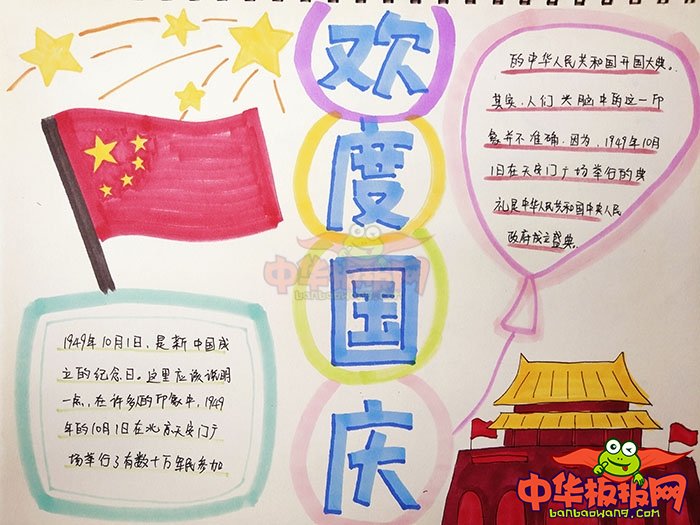 欢
度
国
庆
1949年10月1日,是新中国成
立的纪念日。这里应该说明
一点,在许多的印象中,1949
年的10月1日在北京天安门广
场举行了有数十万军民参加
的中华人民共和国开国大典。
其实,人们头脑中的这一印
象并不准确。因为,1949年10月
1日在天安门广场举行的典
礼是中华人民共和国中央人民
政府成立盛典。
中华板报网
banbaowang.com
中华板报网
banbaowang.com